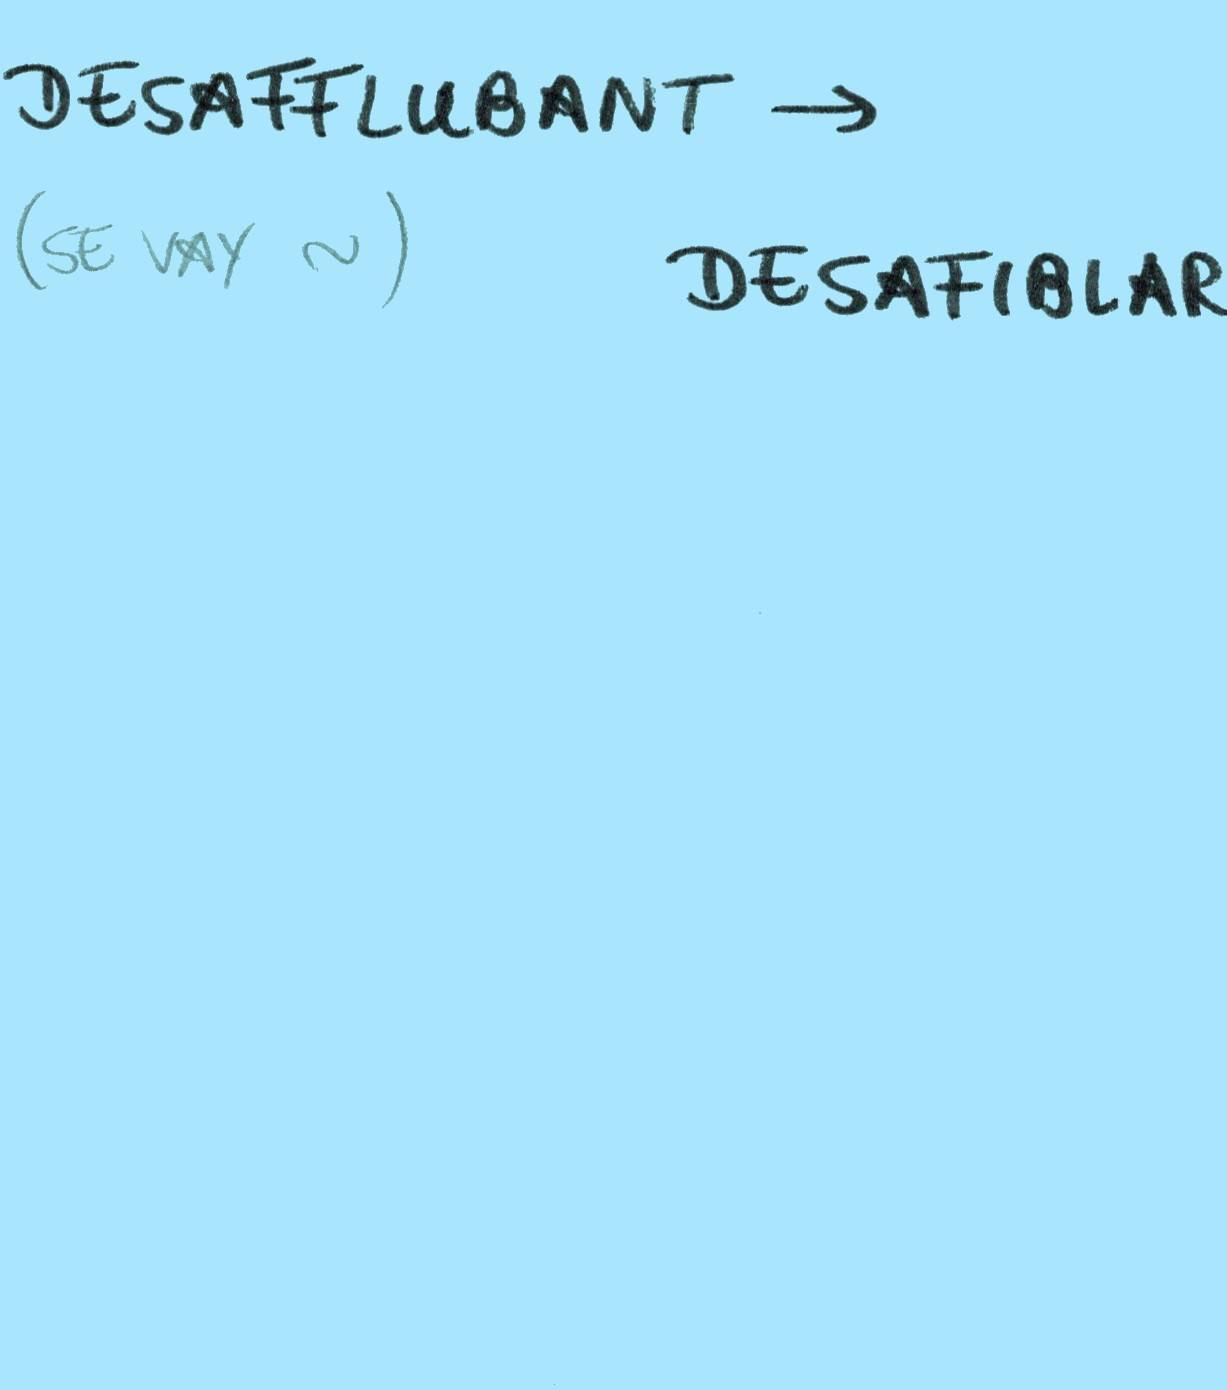 DESAFFLUBANT →
(SE VAY ~)
DESAFIBLAR